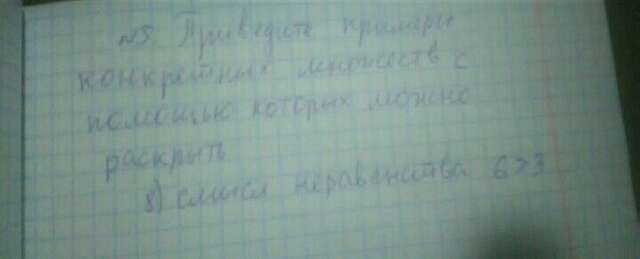 №5 Приведите примеры
конкретных множеств с
помощью которых можно
раскрыть
8) смысл неравенства 6>3